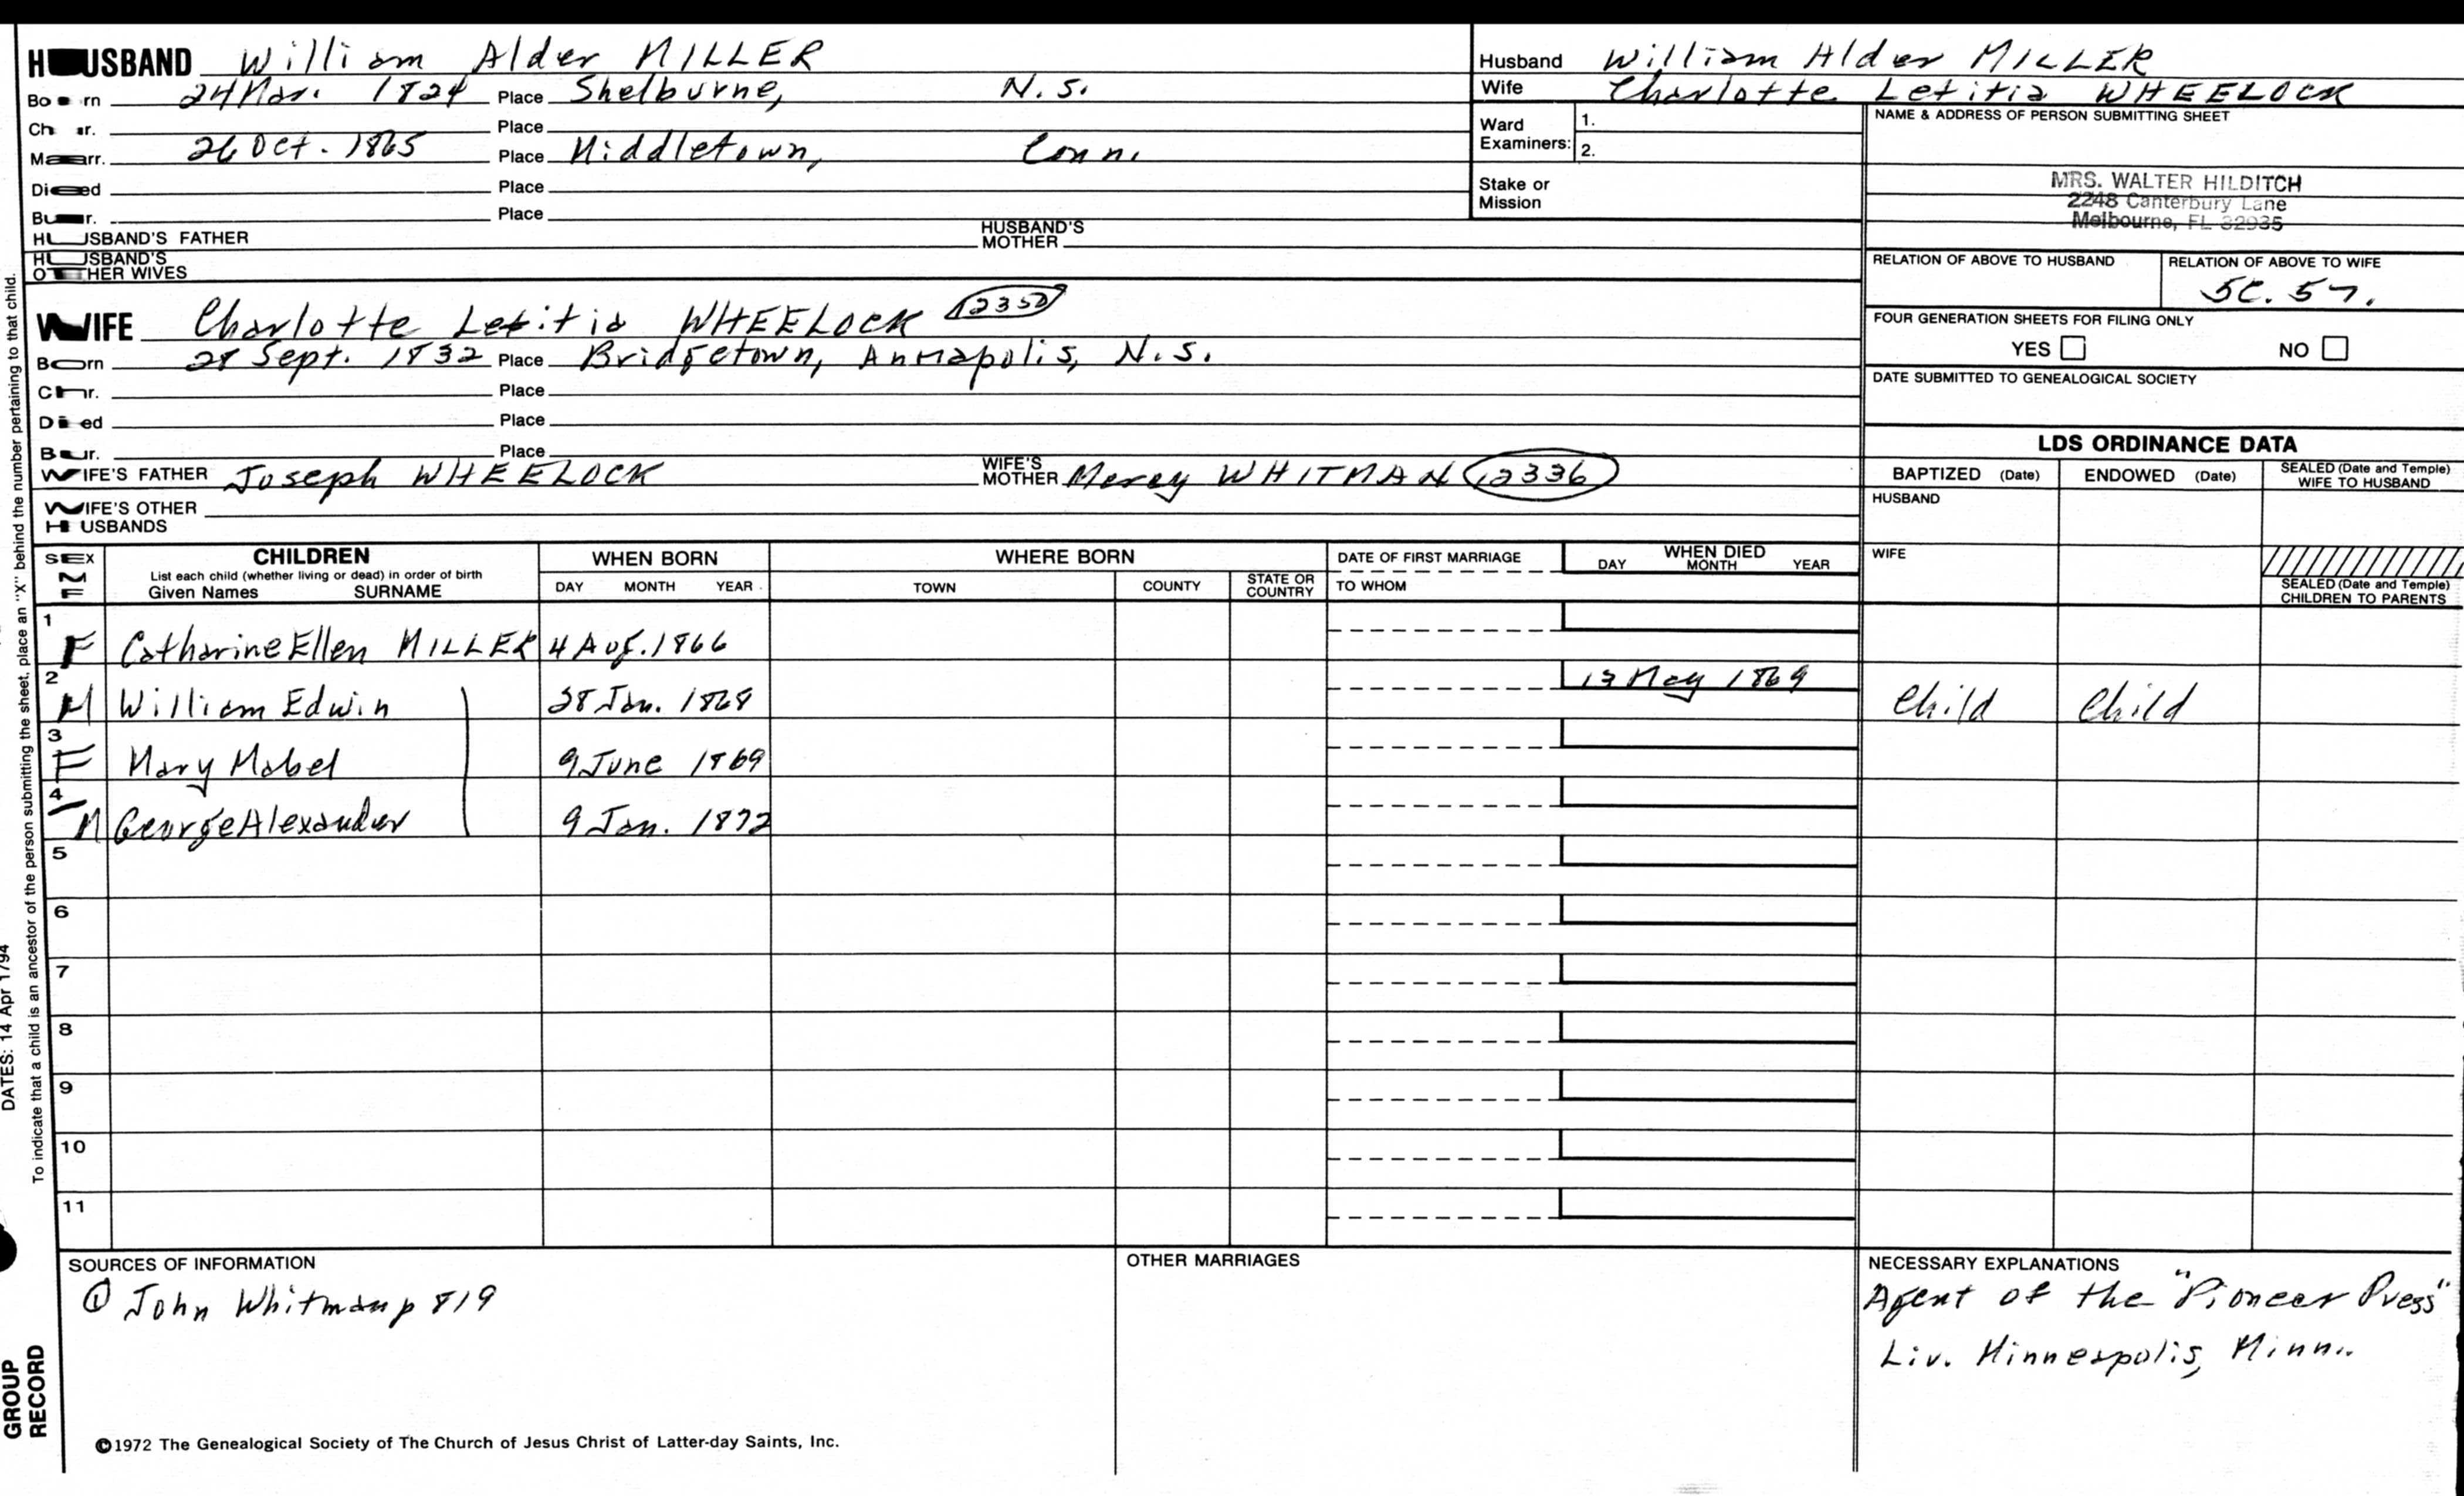 HUSBAND William Alder MILLER
Born 24 Mar. 1824 Place Shelburne, N.S.
Chr. Place
Marr. 26 Oct. 1865 Place Middletown, Conn.
Died Place
Bur. Place
HUSBAND'S FATHER HUSBAND'S MOTHER
HUSBAND'S OTHER WIVES
Husband William Alder MILLER
Wife Charlotte Letitia WHEELOCK
Ward Examiners: 1.
2.
Stake or Mission
NAME & ADDRESS OF PERSON SUBMITTING SHEET
MRS. WALTER HILDITCH
2248 Canterbury Lane
Melbourne, FL 32935
RELATION OF ABOVE TO HUSBAND RELATION OF ABOVE TO WIFE
5C. 5
FOUR GENERATION SHEETS FOR FILING ONLY
YES NO
DATE SUBMITTED TO GENEALOGICAL SOCIETY
WIFE Charlotte Letitia WHEELOCK
Born 28 Sept. 1832 Place Bridgetown, Annapolis, N.S.
Chr. Place
Died Place
Bur. Place
WIFE'S FATHER Joseph WHEELOCK WIFE'S MOTHER Mercy WHITMAN 12336
WIFE'S OTHER HUSBANDS
LDS ORDINANCE DATA
BAPTIZED (Date) ENDOWED (Date) SEALED (Date and Temple) WIFE TO HUSBAND
HUSBAND
WIFE
SEALED (Date and Temple) CHILDREN TO PARENTS
SEX M F
CHILDREN
List each child (whether living or dead) in order of birth
Given Names SURNAME
WHEN BORN
DAY MONTH YEAR
WHERE BORN
TOWN COUNTY STATE OR COUNTRY
DATE OF FIRST MARRIAGE
TO WHOM
WHEN DIED
DAY MONTH YEAR
1 F Catharine Ellen MILLER 4 Aug. 1866
2 M William Edwin 28 Jan. 1868 13 May 1869 Child Child
3 F Mary Mabel 9 June 1869
4 M George Alexander 9 Jan. 1872
5
6
7
8
9
10
11
SOURCES OF INFORMATION
① John Whitman p 819
OTHER MARRIAGES
NECESSARY EXPLANATIONS
Agent of the "Pioneer Press"
Liv. Minneapolis, Minn.
©1972 The Genealogical Society of The Church of Jesus Christ of Latter-day Saints, Inc.
To indicate that a child is an ancestor of the person submitting the sheet, place an "X" behind the number pertaining to that child.
DATES: 14 Apr 1794
GROUP
RECORD